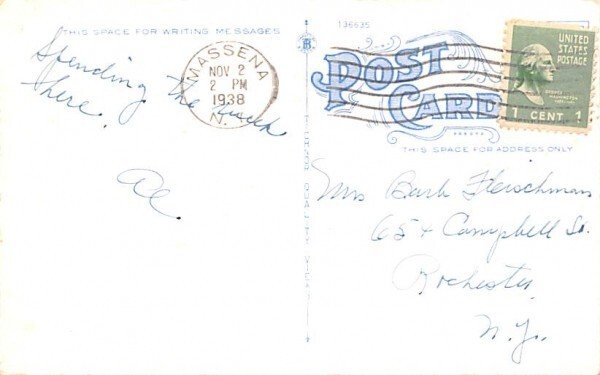 THIS SPACE FOR WRITING MESSAGES
Spending the week
here.
Al.
MASSENA
NOV 2
2 PM
1938
N.
136635
POST
CARD
THIS SPACE FOR ADDRESS ONLY
UNITED
STATES
POSTAGE
GEORGE
WASHINGTON
1 CENT 1
Mrs Barb Fleischman
65 Campbell St.
Rochester
N.Y.